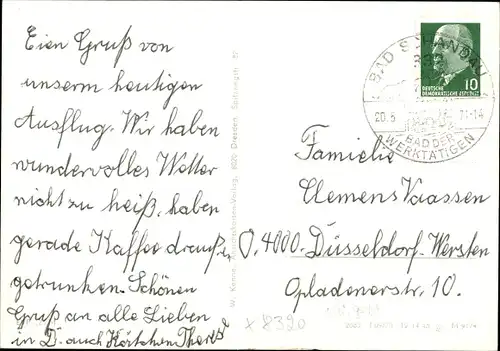 Eien Gruß von
unserm heutigen
Ausflug. Wir haben
wundervolles Wetter
nicht zu heiß, haben
gerade Kaffee draußen
getrunken. Schönen
Gruß an alle Lieben
in D. auch Körtchen Therese
W. Kenne, Ansichtskarten-Verlag, 8020 Dresden,
BAD SCHANDAU
832
20.5 71-14
BAD DER
WERKTÄTIGEN
10
DEUTSCHE
DEMOKRATISCHE REPUBLIK
Familie
Clemens Vaassen
4000 Düsseldorf-Wersten
Opladenerstr, 10.
x 8320